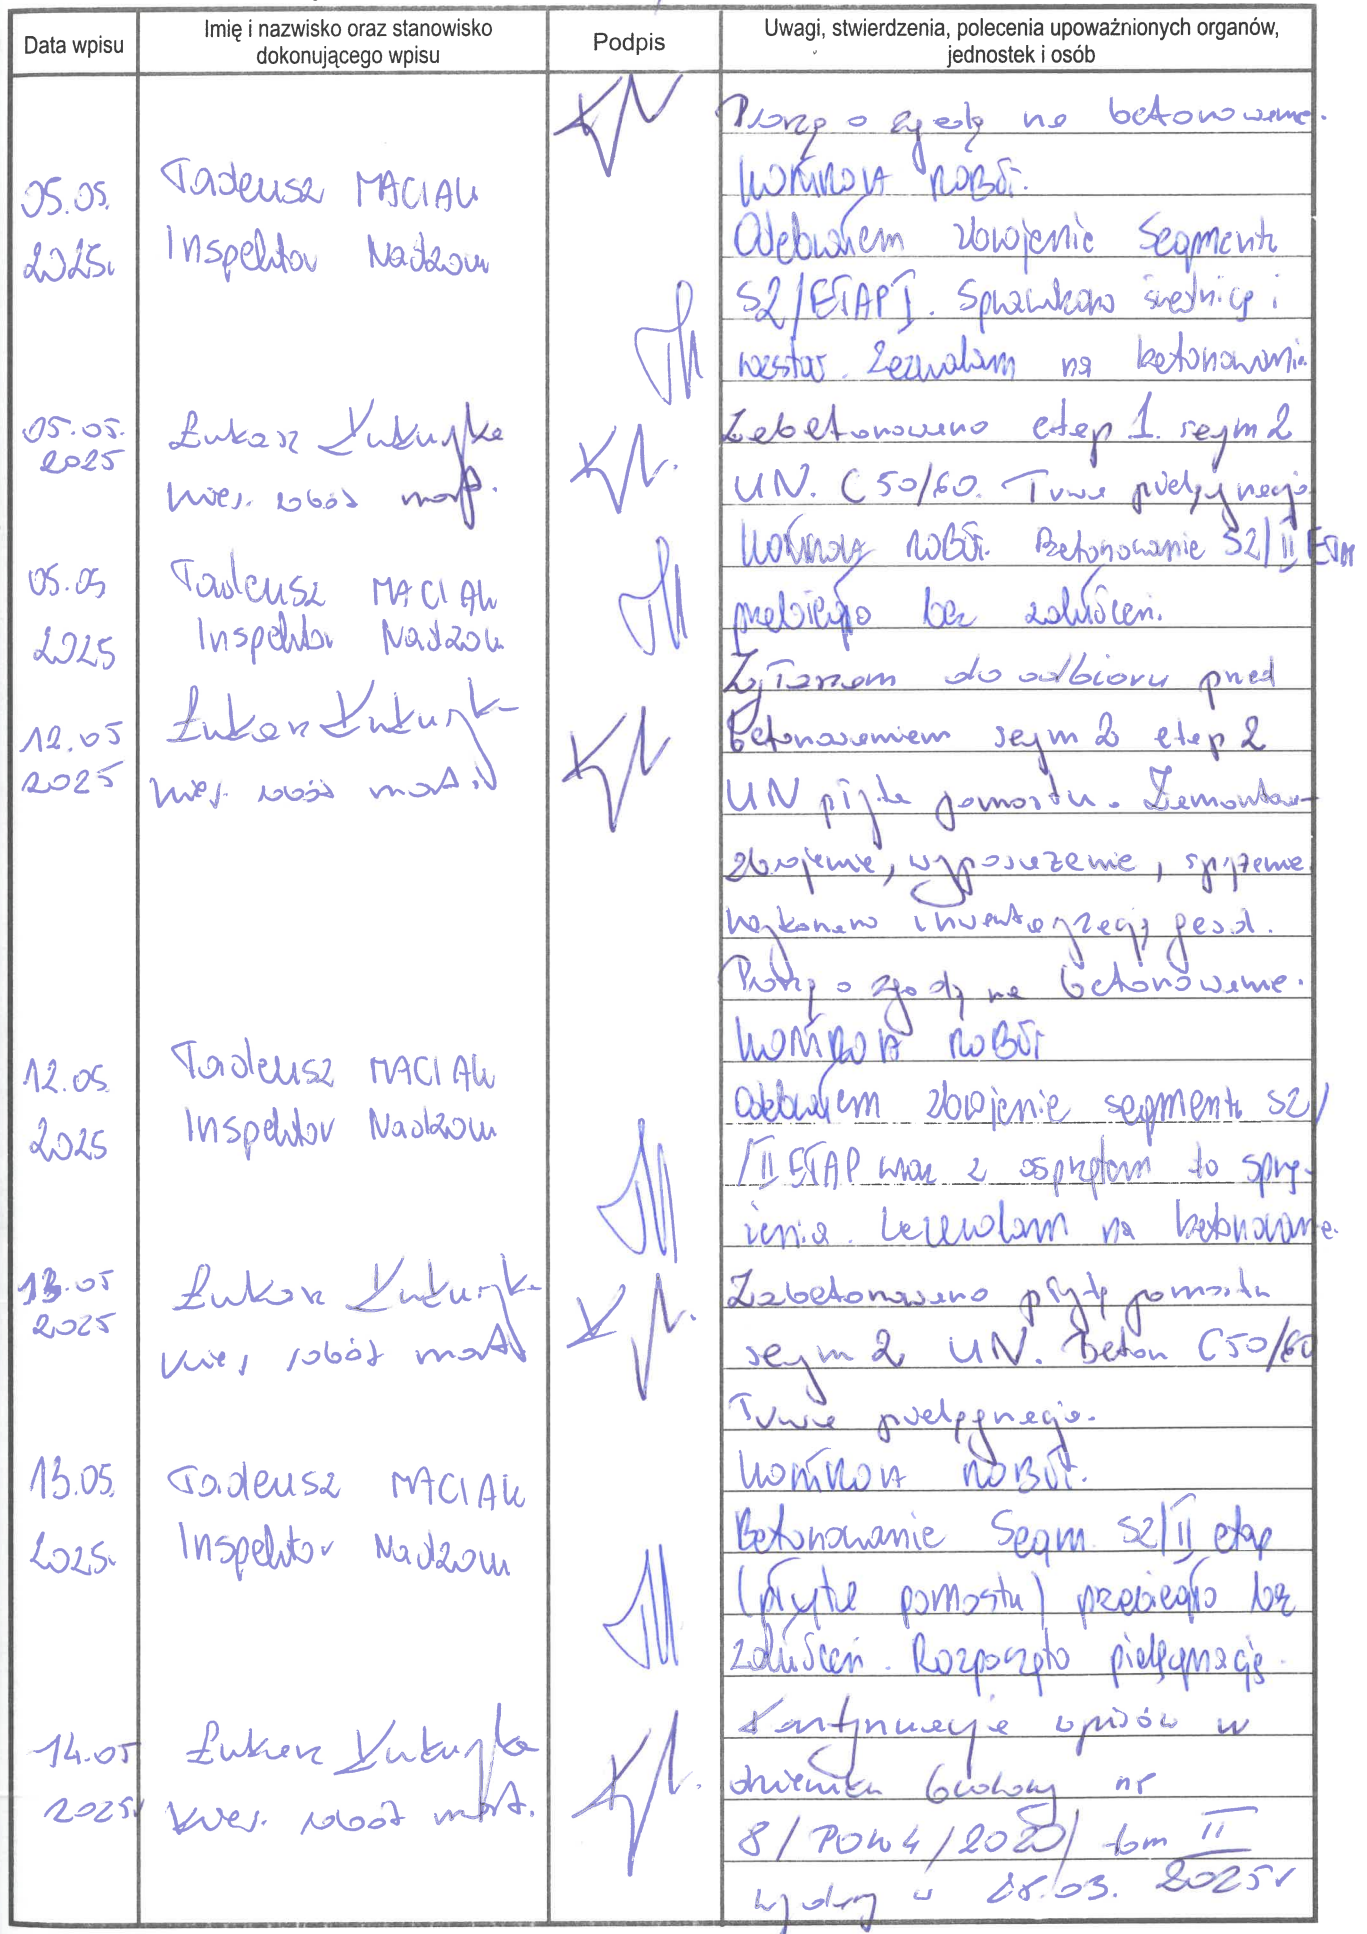 Data wpisu
Imię i nazwisko oraz stanowisko
dokonującego wpisu
Podpis
Uwagi, stwierdzenia, polecenia upoważnionych organów,
jednostek i osób
Proszę o zgodę na betonowanie.
05.05.
2025r.
Tadeusz MACIAK
Inspektor Nadzoru
KONTROLA ROBÓT.
Odebrałem zbrojenie Segmentu
S2/ETAP I. Sprawdzono średnicę i
rozstaw. Zezwalam na betonowanie
05.05.
2025
Łukasz
kier. robót most.
Zabetonowano etap 1. segm 2
UN. C50/60. Trwa pielęgnacja
05.05
2025
Tadeusz MACIAK
Inspektor Nadzoru
KONTROLA ROBÓT. Betonowanie S2/II ETAP
przebiegło bez zakłóceń.
12.05
2025
Łukasz
kier. robót most.
Zgłaszam do odbioru przed
betonowaniem segm 2 etap 2
UN płytę pomostu. Zamontow-
zbrojenie, wyposażenie, sprężenie.
Wykonano inwentaryzację geod.
Proszę o zgodę na betonowanie.
12.05.
2025
Tadeusz MACIAK
Inspektor Nadzoru
KONTROLA ROBÓT
Odebrałem zbrojenie segmentu S2/
/II ETAP wraz z osprzętem do sprę-
żenia. Zezwalam na betonowanie.
13.05
2025
Łukasz
kier. robót most.
Zabetonowano płytę pomostu
segm 2 UN. Beton C50/60
Trwa pielęgnacja.
13.05.
2025r.
Tadeusz MACIAK
Inspektor Nadzoru
KONTROLA ROBÓT.
Betonowanie Segm. S2/II etap
(płyta pomostu) przebiegło bez
zakłóceń. Rozpoczęto pielęgnację.
14.05
2025r
Łukasz
kier. robót most.
Kontynuacja wpisów w
dzienniku budowy nr
8/POW4/2020/ tom II
wydany 28.03. 2025r